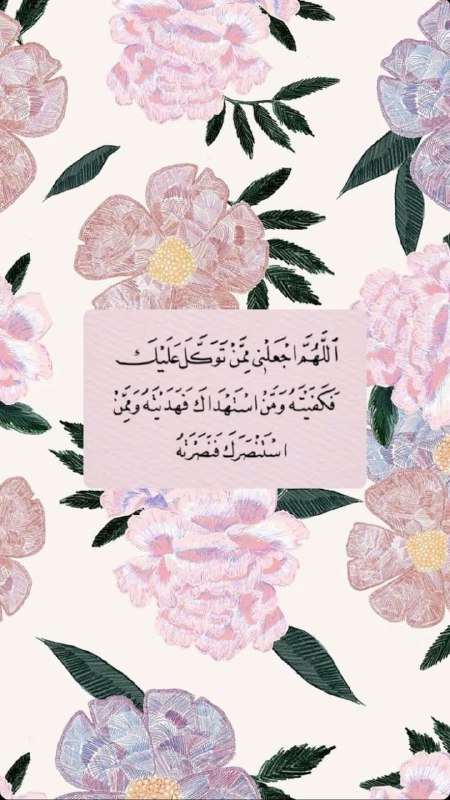 اَللَّهُمَّ اجْعَلْنِي مِمَّنْ تَوَكَّلَ عَلَيْكَ
فَكَفَيْتَهُ وَمَنْ اسْتَهْدَاكَ فَهَدَيْتَهُ وَمِمَّنْ
اسْتَنْصَرَكَ فَنَصَرْتَهُ